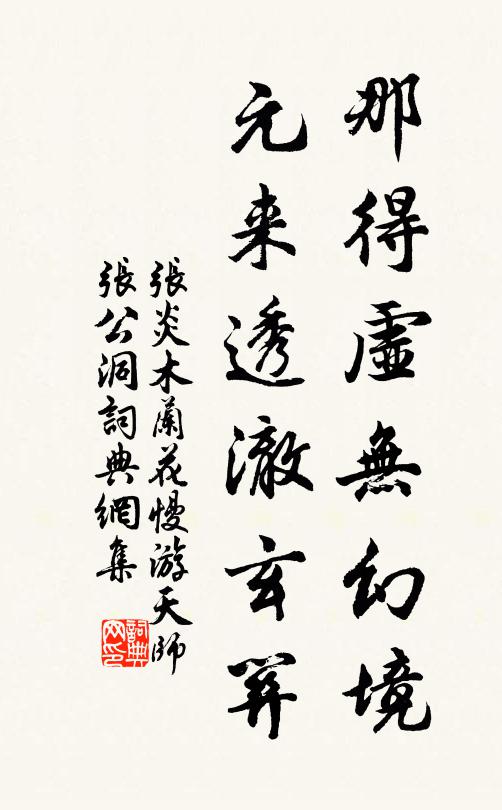 那得虛無幻境
元来透澈玄關
張炎木蘭花慢游天師
張公洞詞典網集
詞典網印